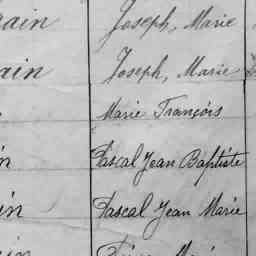 ain Joseph, Marie
ain Joseph, Marie
Marie François
in Pascal Jean Baptiste
in Pascal Jean Marie